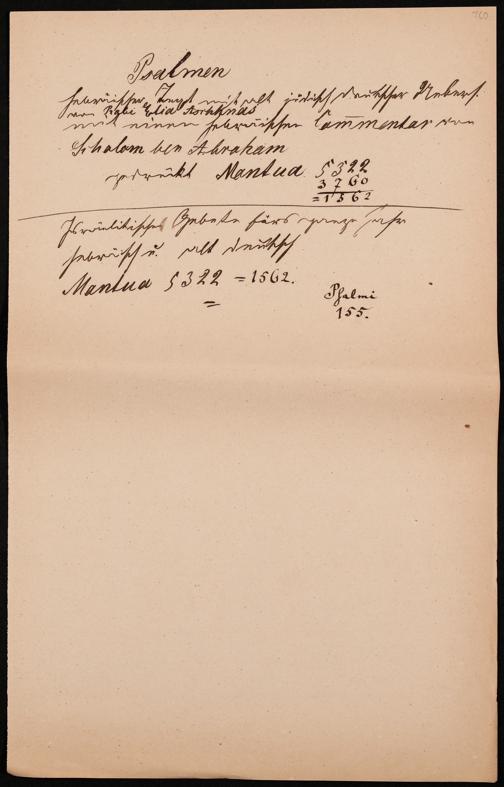 160
Psalmen
hebräischer Text mit alt jüdisch deutscher Uebers.
von Rabi Elia Aschkenas
mit einem hebräischen Com̅mentar von
Schalom ben Abraham
gedruckt Mantua 5322
3760
=1562
Israelitisches Gebete fürs ganze Jahr
hebräisch u. alt deutsch
Mantua 5322 =1562.
Psalmi
155.